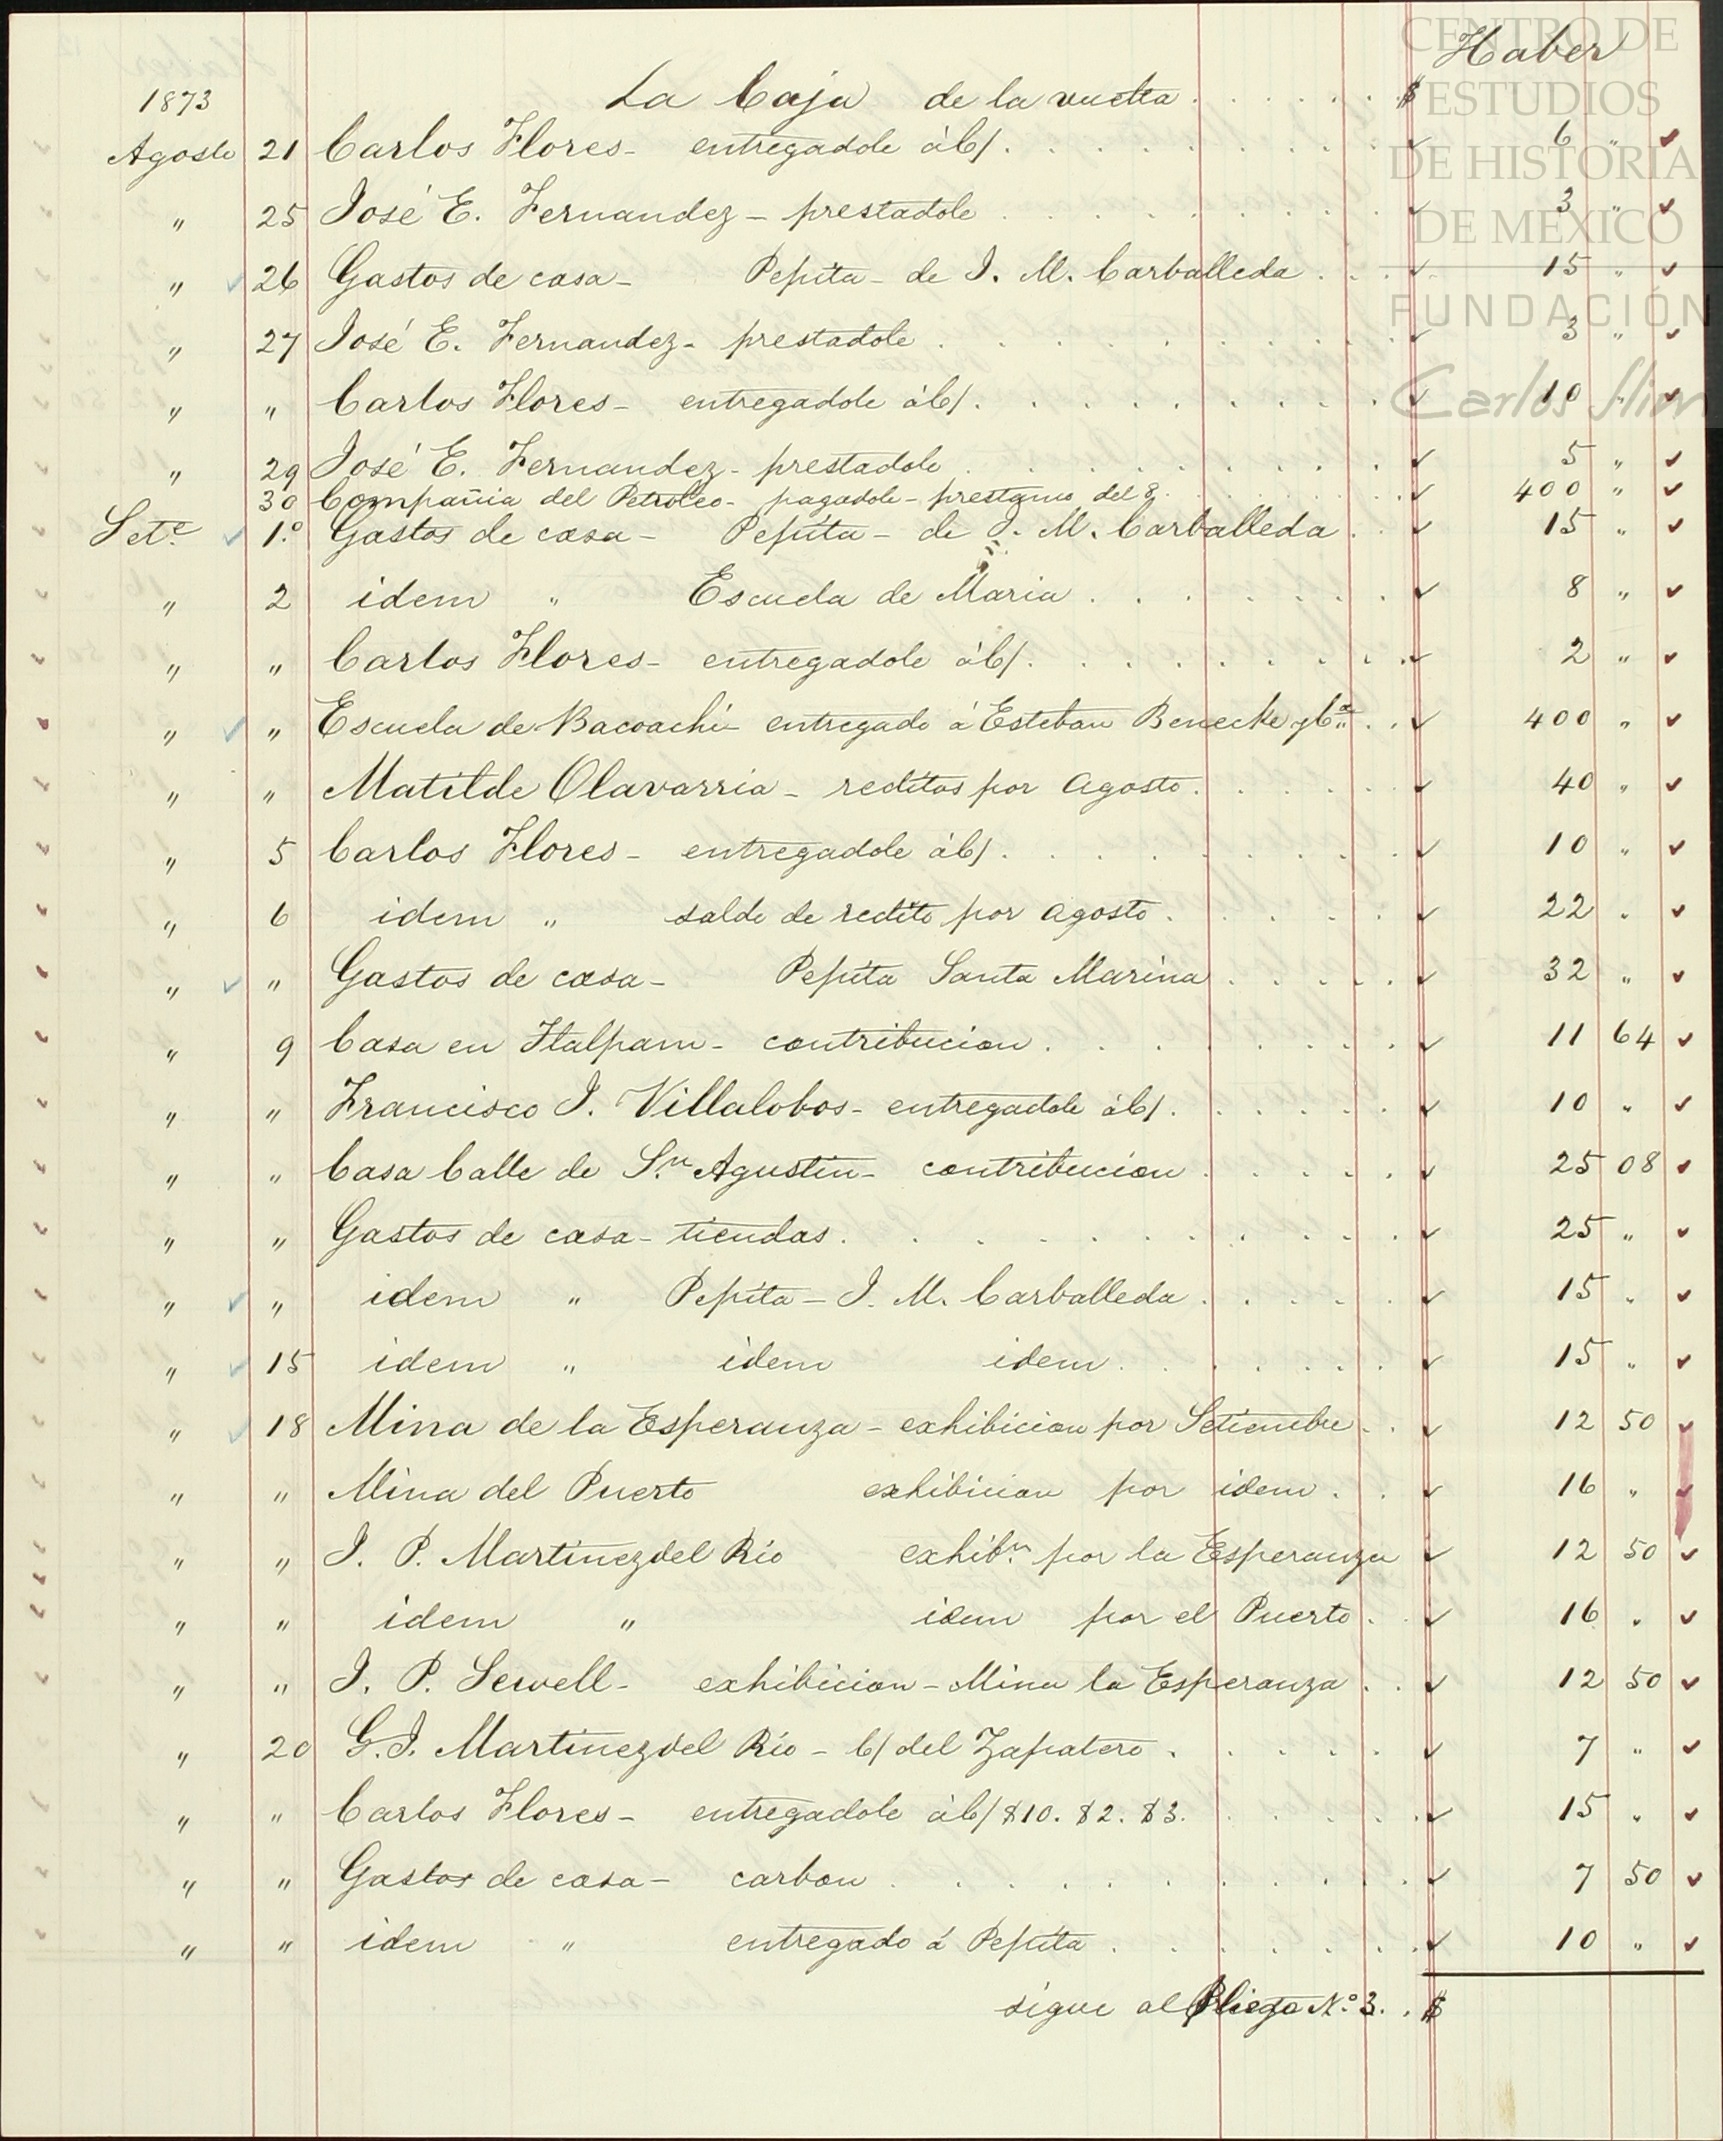 CENTRO DE
ESTUDIOS
DE HISTORIA
DE MEXICO
FUNDACIÓN
Carlos Slim
Haber
1873 La Caja de la vuelta . . . . . . $
Agosto 21 Carlos Flores - entregadole á C/. 6 "
" 25 José E. Fernandez - prestadole 3 "
" 26 Gastos de casa - Pepita - de J. M. Carballeda 15 "
" 27 José E. Fernandez - prestadole 3 "
" " Carlos Flores - entregadole á C/. 10 "
" 29 José E. Fernandez - prestadole 5 "
30 Compañia del Petroleo - pagadole - prestamo del 8 400 "
Sete. 1.º Gastos de casa - Pepita - de J. M. Carballeda 15 "
" 2 idem " Escuela de Maria 8 "
" " Carlos Flores - entregadole á C/. 2 "
" " Escuela de Bacoachi - entregado á Esteban Benecke y Ca. 400 "
" " Matilde Olavarria - reditos por Agosto. 40 "
" 5 Carlos Flores - entregadole á C/. 10 "
" 6 idem " saldo de redito por Agosto. 22 "
" " Gastos de casa - Pepita Santa Marina 32 "
" 9 Casa en Tlalpam - contribucion 11 64
" " Francisco J. Villalobos - entregadole á C/. 10 "
" " Casa Calle de Sn. Agustin - contribucion 25 08
" " Gastos de casa - tiendas. 25 "
" " idem " Pepita - J. M. Carballeda 15 "
" 15 idem " idem idem 15 "
" 18 Mina de la Esperanza - exhibicion por Setiembre 12 50
" " Mina del Puerto exhibicion por idem 16 "
" " J. P. Martinez del Rio exhibn. por la Esperanza 12 50
" " idem " idem por el Puerto 16 "
" " J. P. Sewell - exhibicion - Mina la Esperanza 12 50
" 20 G. J. Martinez del Rio - C/ del Zapatero 7 "
" " Carlos Flores - entregadole á C/ $10. $2. $3. 15 "
" " Gastos de casa - carbon 7 50
" " idem " entregado á Pepita 10 "
sigue al Pliego N.º 3. . $